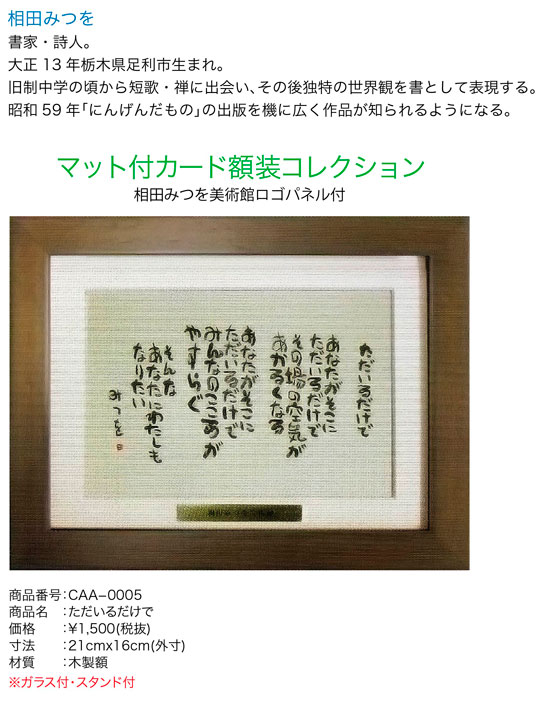 相田みつを
書家・詩人。
大正13年栃木県足利市生まれ。
旧制中学の頃から短歌・禅に出会い、その後独特の世界観を書として表現する。
昭和59年「にんげんだもの」の出版を機に広く作品が知られるようになる。
マット付カード額装コレクション
相田みつを美術館ロゴパネル付
ただいるだけで
あなたがそこに
ただいるだけで
その場の空気が
あかるくなる
あなたがそこに
ただいるだけで
みんなのこころが
やすらぐ
そんな
あなたにわたしも
なりたい
みつを
商品番号:CAA-0005
商品名 :ただいるだけで
価格 :¥1,500(税抜)
寸法 :21cmx16cm(外寸)
材質 :木製額
※ガラス付・スタンド付